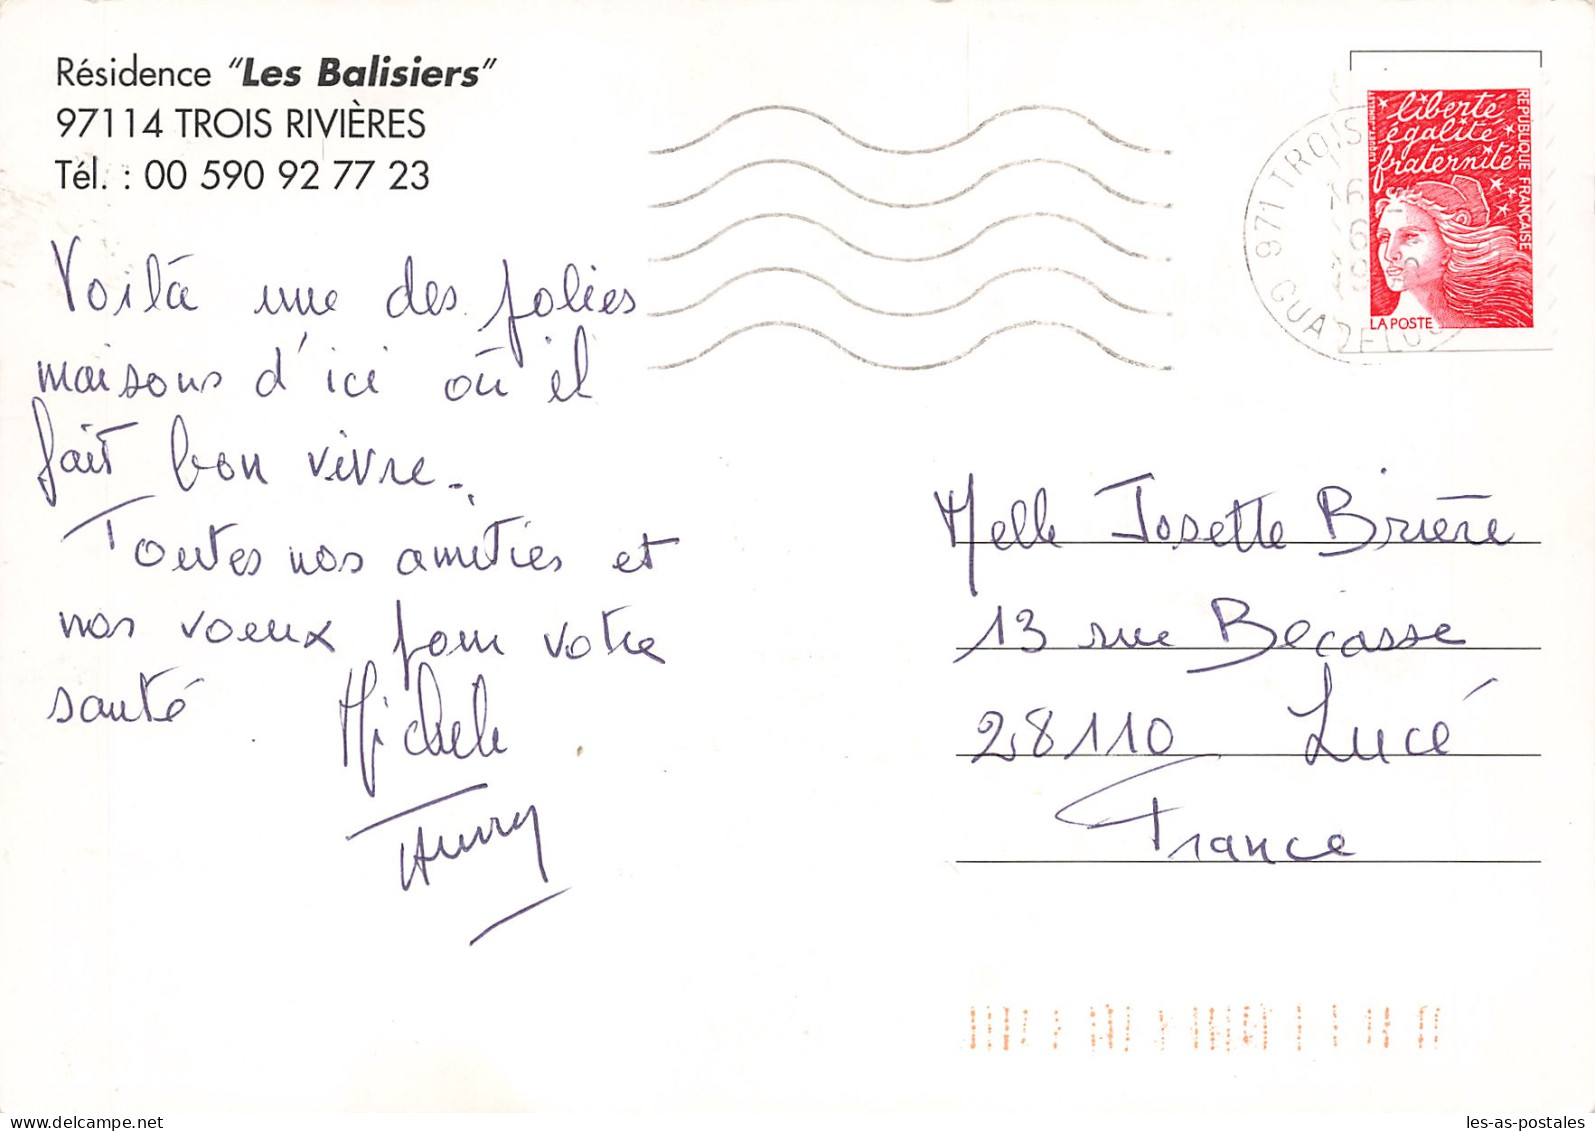 Résidence "Les Balisiers"
97114 TROIS RIVIÈRES
Tél. : 00 590 92 77 23
Voilà une des jolies
maisons d'ici où il
fait bon vivre.
Toutes nos amitiés et
nos voeux pour votre
santé
Michele
liberté
égalité
fraternité
REPUBLIQUE FRANÇAISE
LA POSTE
971 TROIS
GUADELOU
Melle Josette Brière
13 rue Bécasse
28110 Lucé
France
les-as-postales